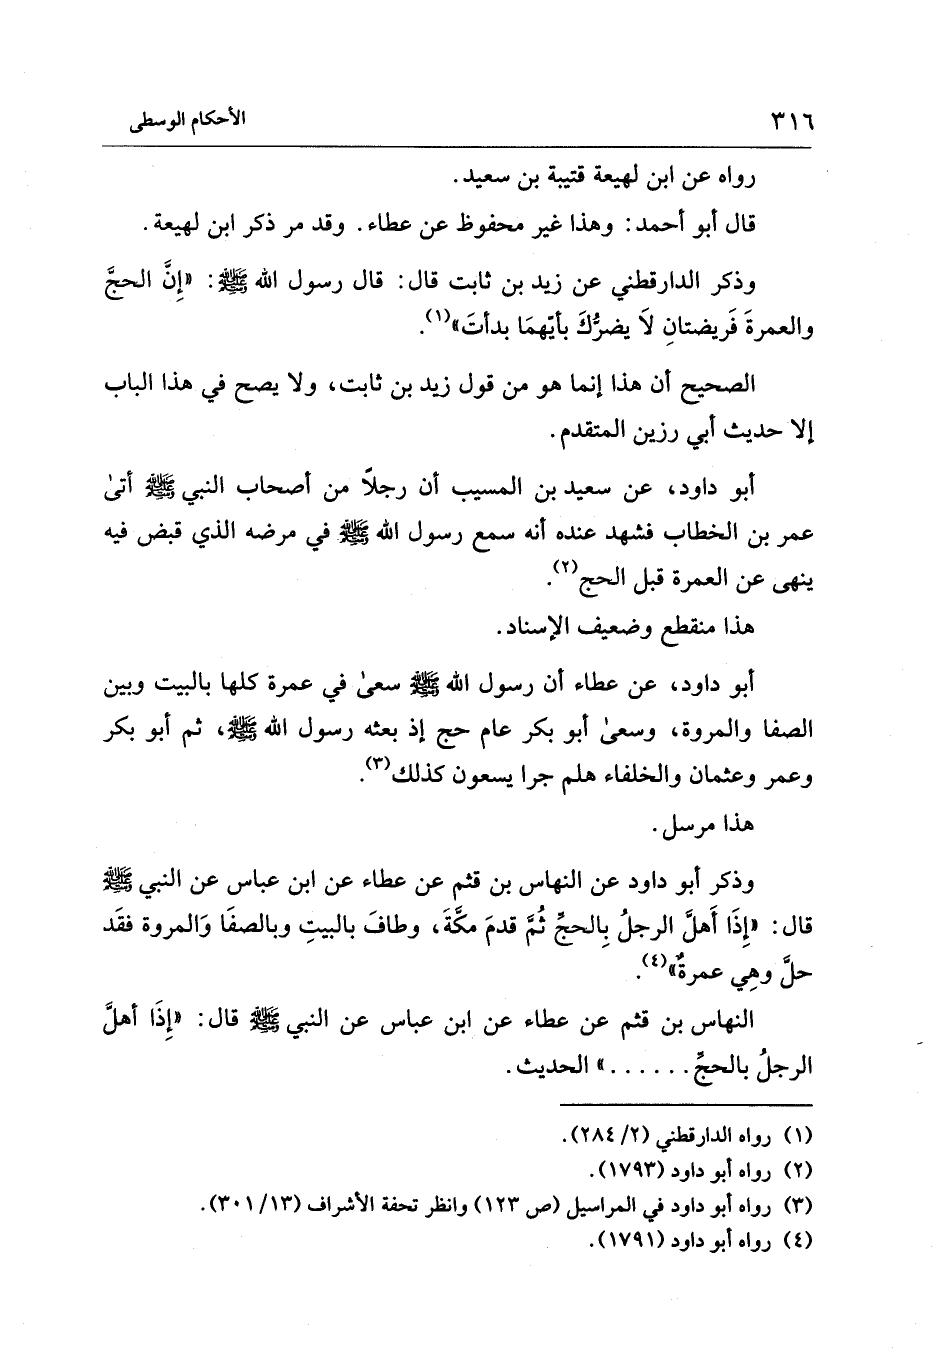 ٣١٦ الأحكام الوسطى
رواه عن ابن لهيعة قتيبة بن سعيد.
قال أبو أحمد: وهذا غير محفوظ عن عطاء. وقد مر ذكر ابن لهيعة.
وذكر الدارقطني عن زيد بن ثابت قال: قال رسول الله ﷺ: «إِنَّ الحجَّ
والعمرةَ فَريضتانِ لَا يضرُّكَ بأيّهمَا بدأتَ»(١).
الصحيح أن هذا إنما هو من قول زيد بن ثابت، ولا يصح في هذا الباب
إلا حديث أبي رزين المتقدم.
أبو داود، عن سعيد بن المسيب أن رجلاً من أصحاب النبي ﷺ أتىٰ
عمر بن الخطاب فشهد عنده أنه سمع رسول الله ﷺ في مرضه الذي قبض فيه
ينهى عن العمرة قبل الحج(٢).
هذا منقطع وضعيف الإسناد.
أبو داود، عن عطاء أن رسول الله ﷺ سعىٰ في عمرة كلها بالبيت وبين
الصفا والمروة، وسعىٰ أبو بكر عام حج إذ بعثه رسول الله ﷺ، ثم أبو بكر
وعمر وعثمان والخلفاء هلم جرا يسعون كذلك(٣).
هذا مرسل.
وذكر أبو داود عن النهاس بن قثم عن عطاء عن ابن عباس عن النبي ﷺ
قال: «إِذَا أَهلَّ الرجلُ بِالحجِّ ثُمَّ قدمَ مكَّةَ، وطافَ بالبيتِ وبالصفَا وَالمروة فقَد
حلَّ وهِي عمرةٌ»(٤).
النهاس بن قثم عن عطاء عن ابن عباس عن النبي ﷺ قال: «إِذَا أهلَّ
الرجلُ بالحجِّ......» الحديث.
(١) رواه الدارقطني (٢/ ٢٨٤).
(٢) رواه أبو داود (١٧٩٣).
(٣) رواه أبو داود في المراسيل (ص ١٢٣) وانظر تحفة الأشراف (١٣/ ٣٠١).
(٤) رواه أبو داود (١٧٩١).